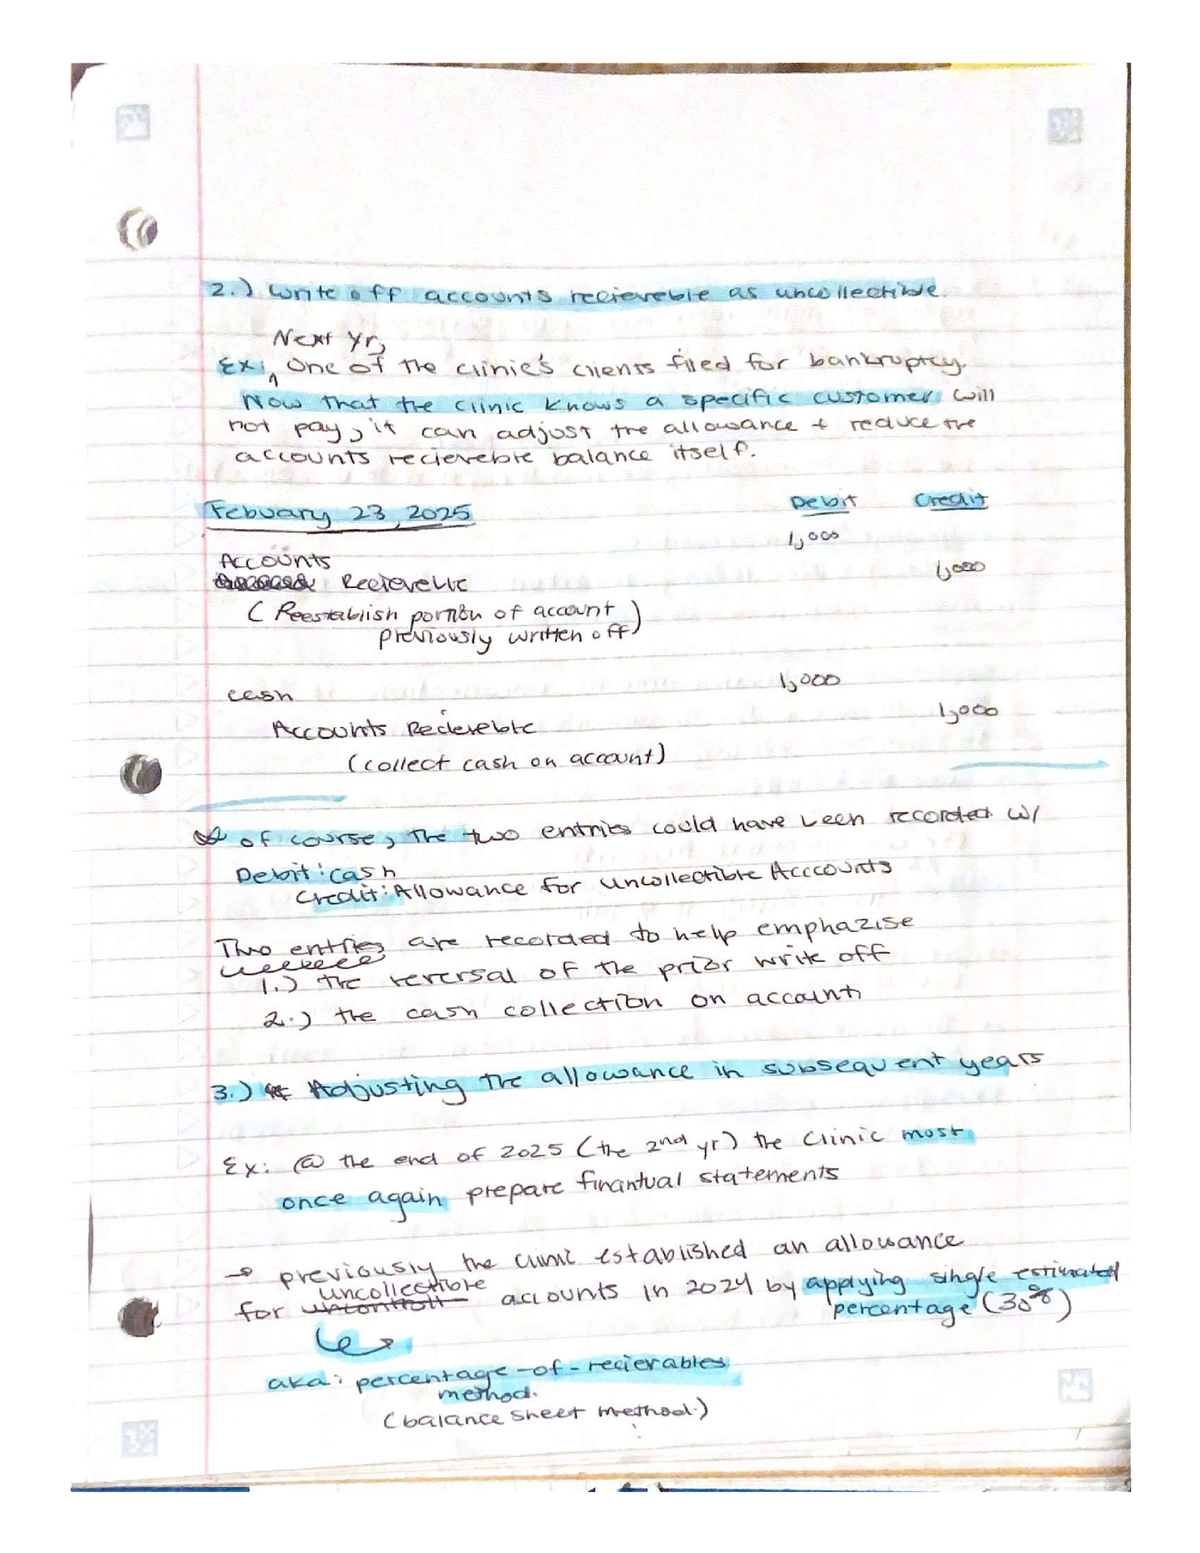 2.) write off accounts recieveble as uncollectible.
Next yr,
Ex: ^ One of the clinic's clients filed for bankruptcy.
Now that the clinic knows a specific customer will
not pay, it can adjust the allowance + reduce the
accounts recieveble balance itself.
Febuary 23, 2025 Debit Credit
Accounts 1,000
Recieveble 1,000
(Reestablish portion of account
previously written off)
cash 1,000
Accounts Recieveble 1,000
(collect cash on account)
of course, the two entries could have been recorded w/
Debit: cash
Credit: Allowance for uncollectible Acccounts
Two entries are recorded to help emphazise
1.) the reversal of the prior write off
2.) the cash collection on account
3.) Adjusting the allowance in subsequent years
Ex: @ the end of 2025 (the 2nd yr) the clinic most
once again prepare finantual statements
→ previously the clinic established an allowance
for uncollectible accounts in 2024 by applying single estimated
percentage (30%)
aka: percentage-of-recierables
method.
(balance sheet method.)